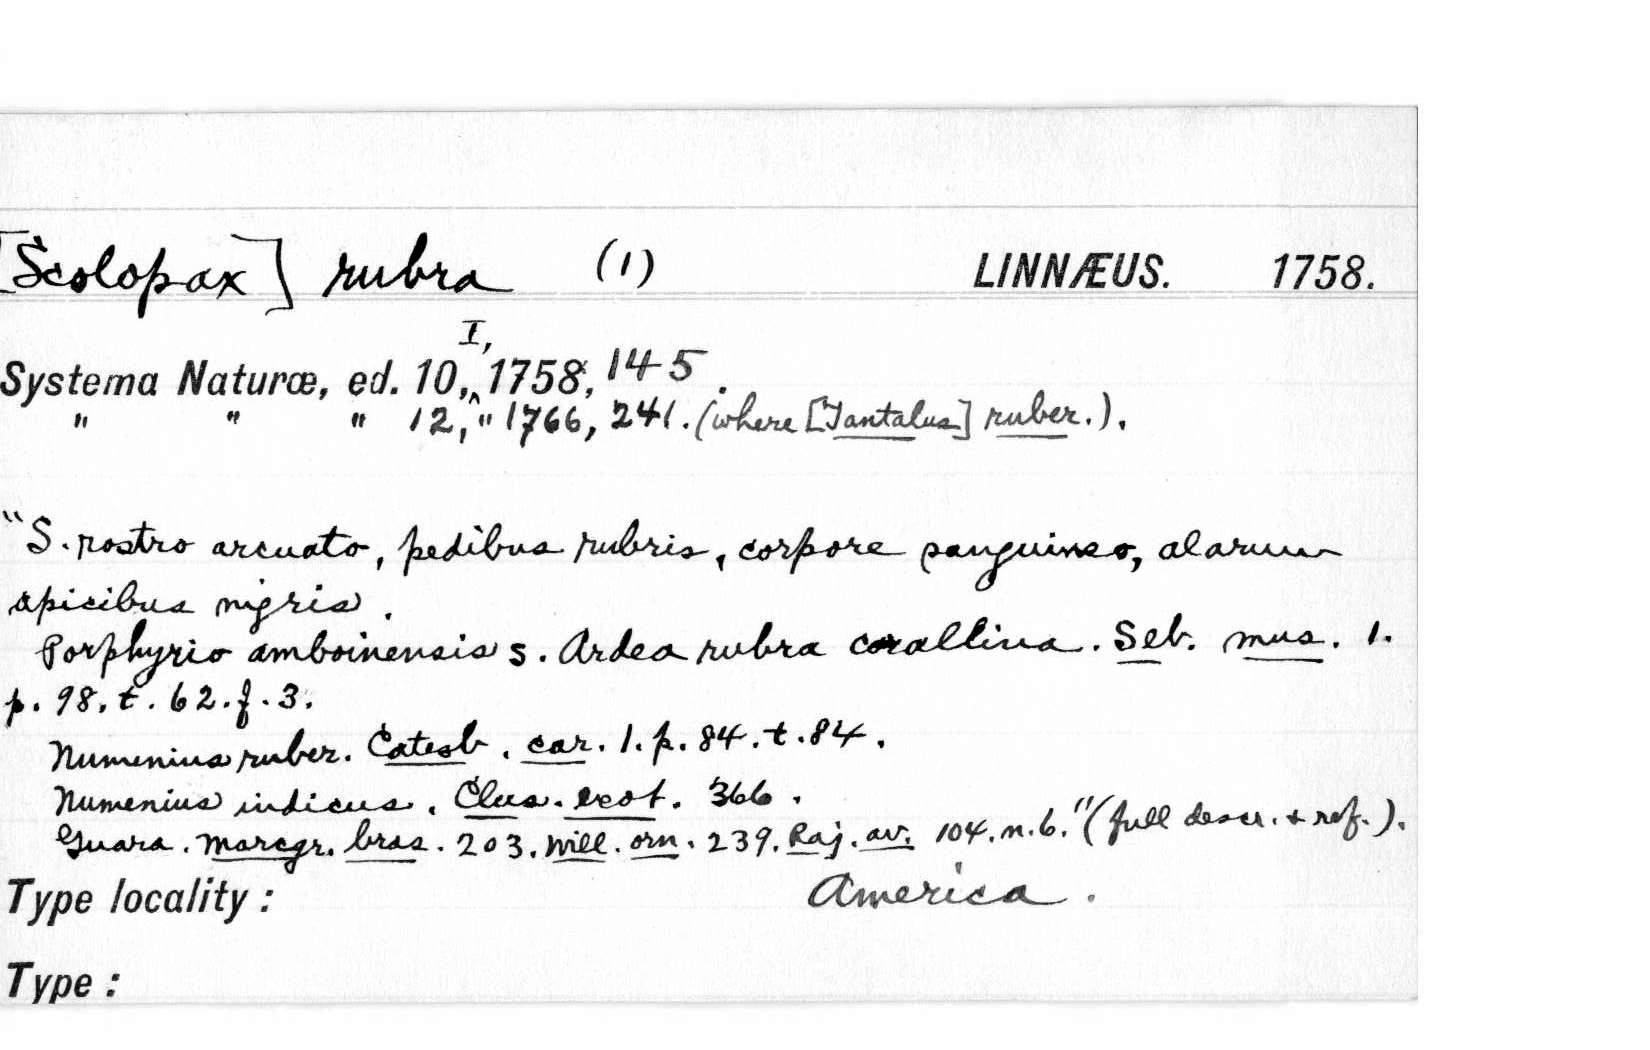 [Scolopax] rubra (1) LINNÆUS. 1758.
I,
Systema Naturæ, ed. 10,^ 1758, 145.
" " " 12, " 1766, 241. (where [Tantalus] ruber.).
"S. rostro arcuato, pedibus rubris, corpore sanguineo, alarum
apicibus nigris.
Porphyrio amboinensis s. Ardea rubra corallina. Seb. mus. 1.
p. 98. t. 62. f. 3.
Numenius ruber. Catesb. car. 1. p. 84. t. 84.
Numenius indicus. Clus. exot. 366.
Guara. Marcgr. bras. 203. Will. orn. 239. Raj. av. 104. n. 6." (full descr. & ref.).
Type locality: America.
Type: